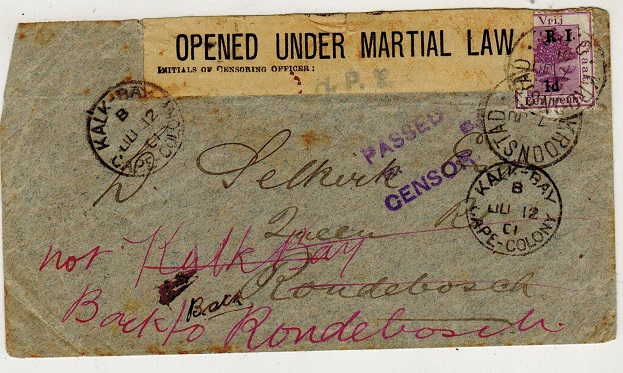 OPENED UNDER MARTIAL LAW
INITIALS OF CENSORING OFFICER:
Vrij
Staat
R. I.
1d
KROONSTAD
KALK-BAY
B
JU 12
01
CAPE COLONY
PASSED
CENSOR
KALK-BAY
B
JU 12
01
CAPE-COLONY
D Selkirk
Queen
not Kalk Bay
Rondebosch
Back
Back to Rondebosch